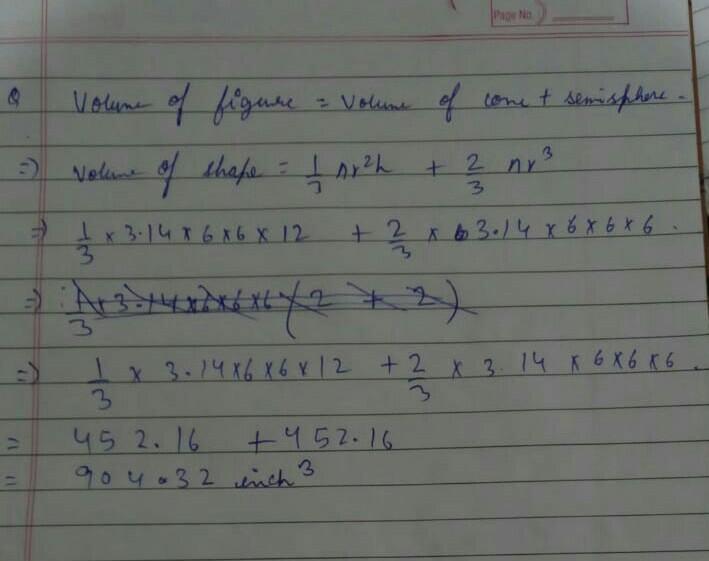 Page No.
Q Volume of figure = Volume of cone + semisphere.
=> Volume of shape = 1/3 πr²h + 2/3 πr³
=> 1/3 × 3.14 × 6 × 6 × 12 + 2/3 × 3.14 × 6 × 6 × 6.
=> 1/3 × 3.14 × 6 × 6 × 6 ( 2 + 2 )
=> 1/3 × 3.14 × 6 × 6 × 12 + 2/3 × 3.14 × 6 × 6 × 6.
= 452.16 + 452.16
= 904.32 inch³